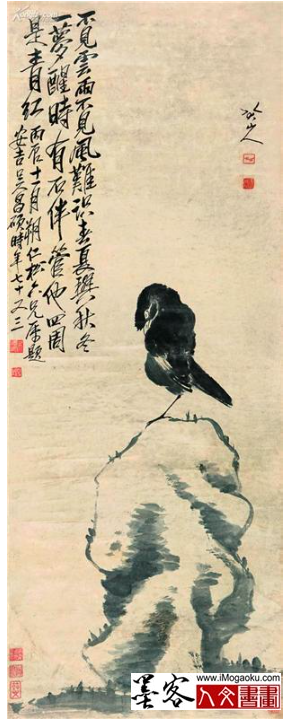 八大山人
不見雲雨不見風難識春夏與秋冬
一夢醒時有石伴管他四周
是青紅丙辰十一月朔仁兄屬題
安吉吳昌碩時年七十又三
www.iMogaoku.com
墨客人文書畫